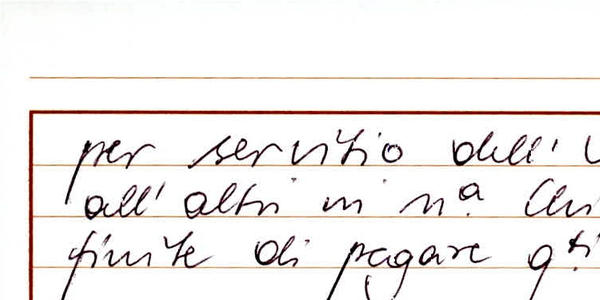 per servitio dell'
all' altri in n.ª
finite di pagare q.ti